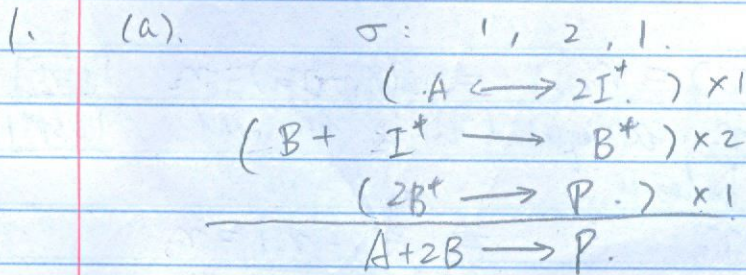 1. (a). σ: 1, 2, 1.
(A ⟷ 2I⁺.) ×1
(B + I⁺ ⟶ B⁺) ×2
(2B⁺ ⟶ P.) ×1
A+2B ⟶ P.